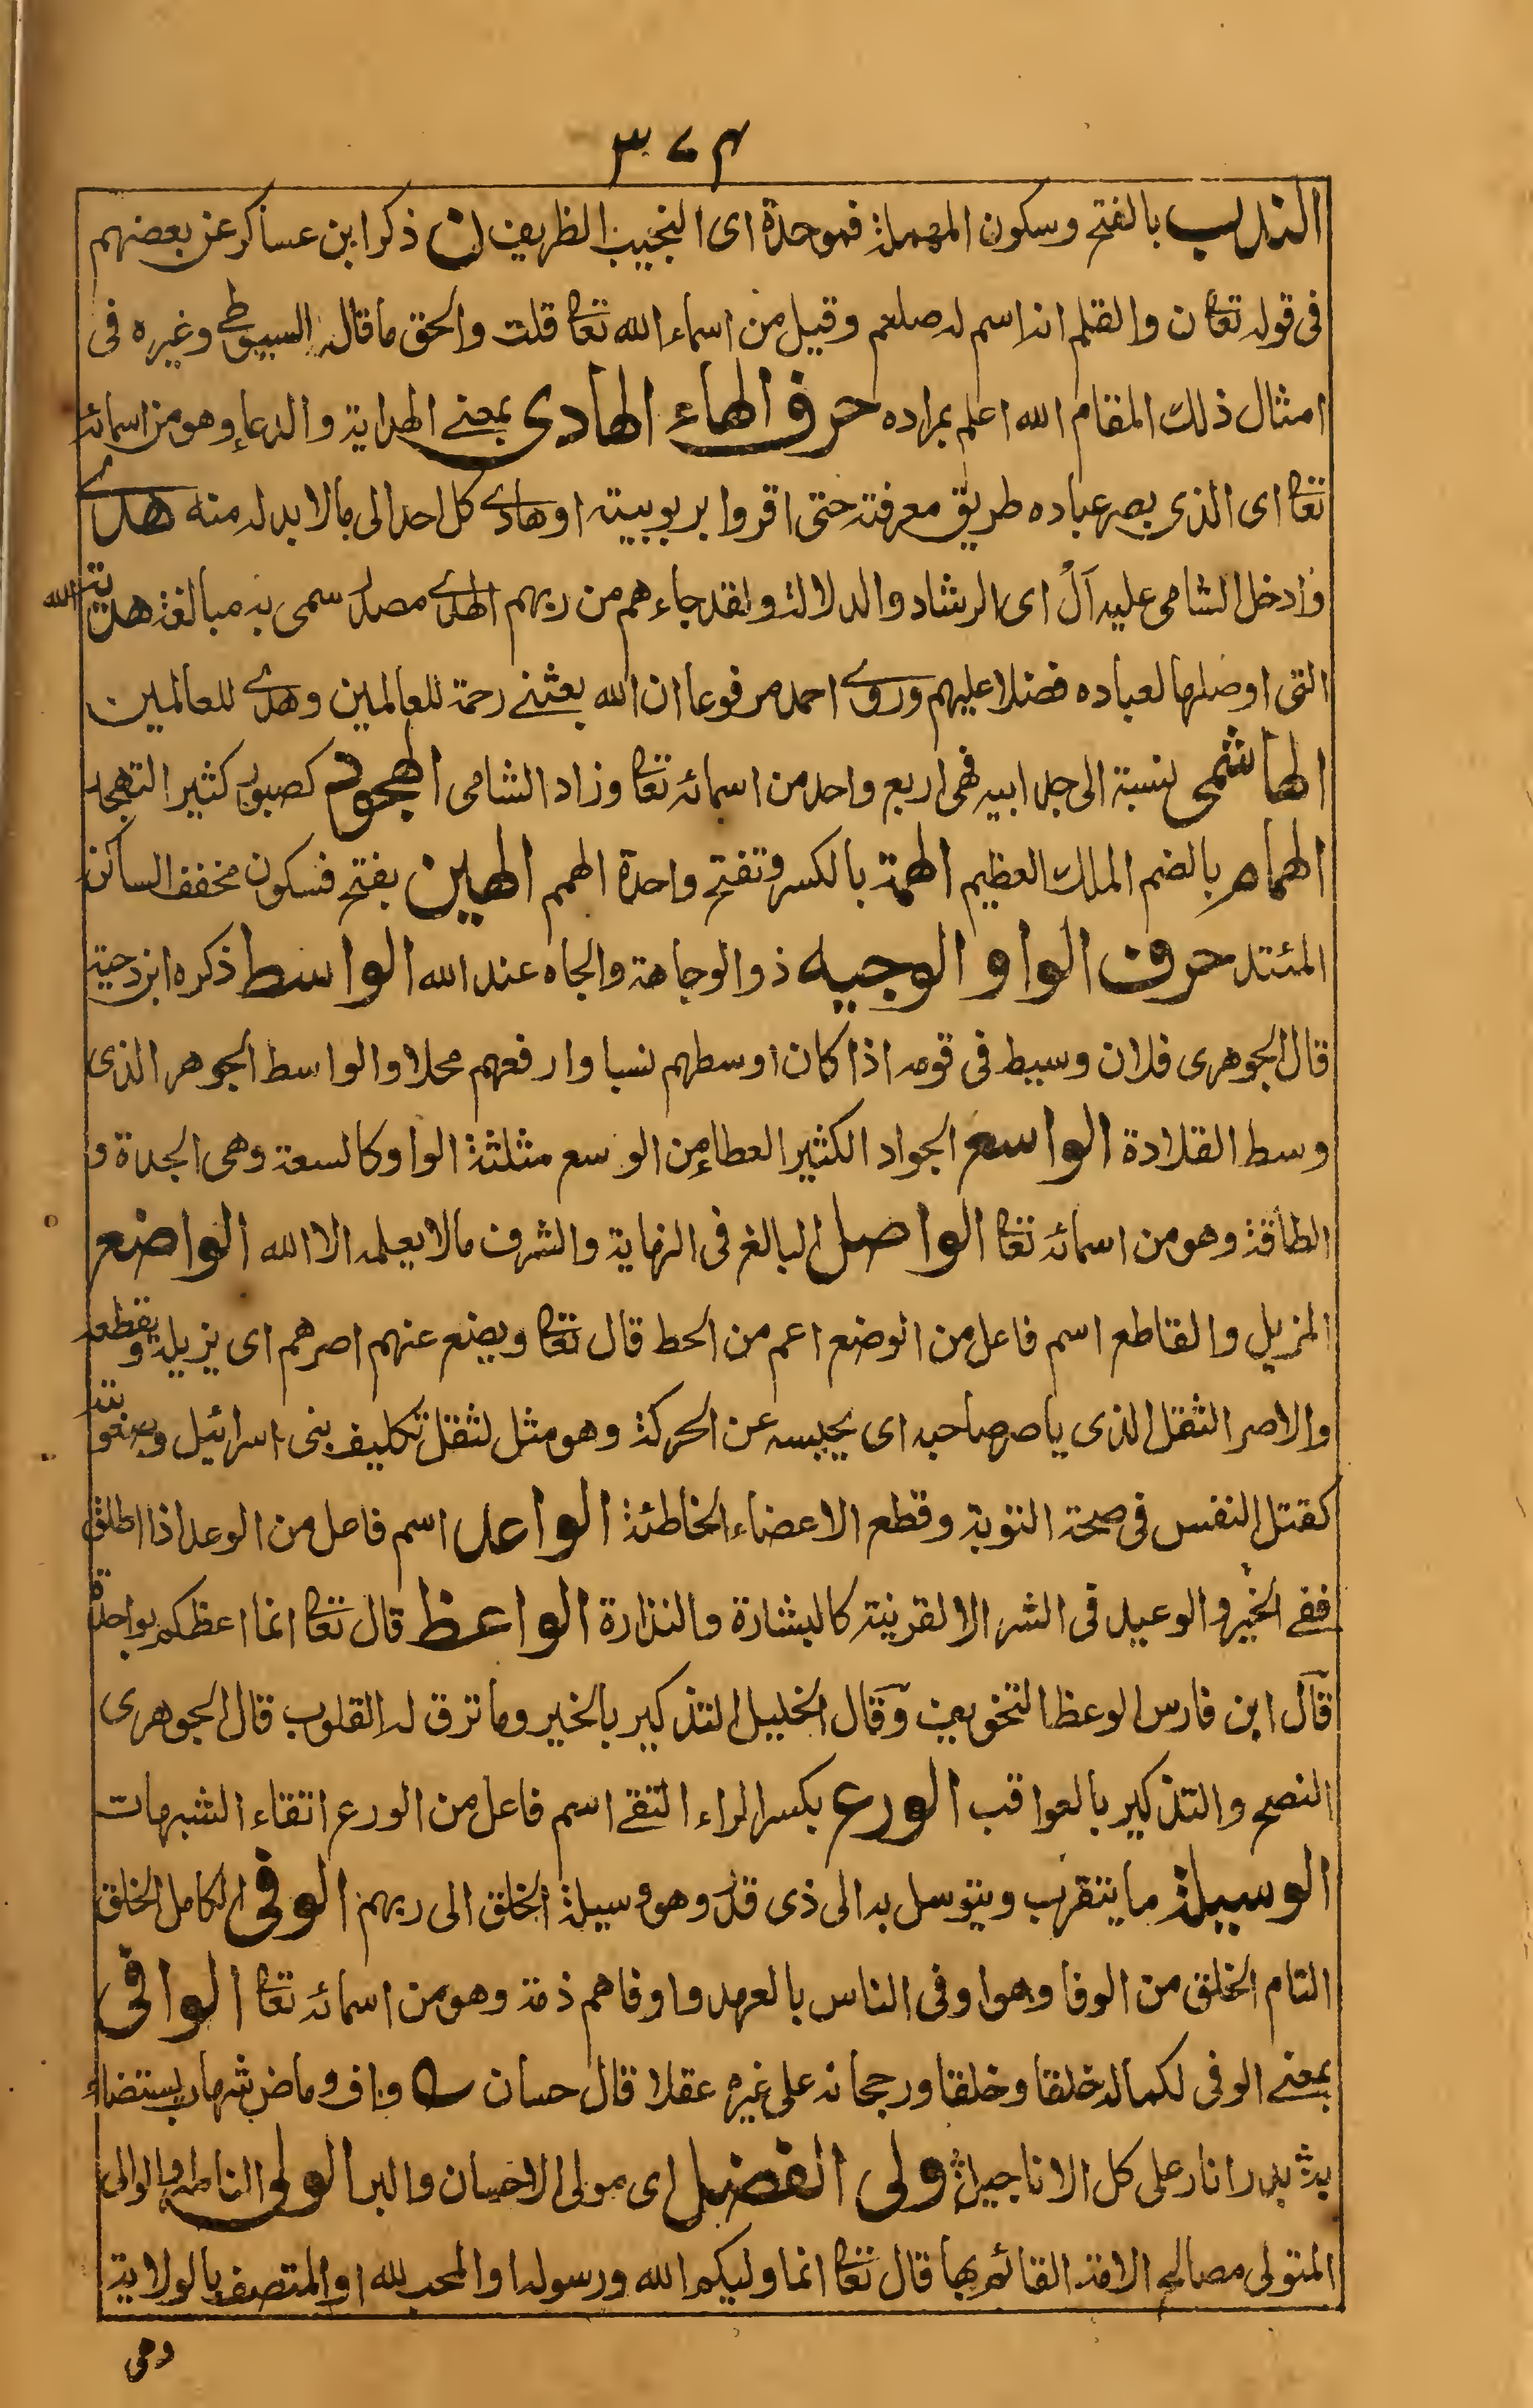 ٣٧٤
الندب بالفتح وسكون المهملة فموحدة اى النجيب الظريف ن ذكر ابن عساكر عن بعضهم
فى قوله تعا ن والقلم انه اسم له صلعم وقيل من اسماء الله تعا قلت والحق ما قاله السيوطى وغيره فى
امثال ذلك المقام الله اعلم بمراده حرف الهاء الهادى بمعنے الهداية والدعاء وهو من اسمائه
تعا اى الذى بصر عباده طريق معرفته حتى اقروا بربوبيته او هادے كل احد الى ما لا بد له منه هدے
وادخل الشامى عليه آل اى الرشاد والدلالة ولقد جاءهم من ربهم الهدے مصدر سمى به مبالغة هدية الله
التى اوصلها لعباده فضلا عليهم وروے احمد مرفوعا ان الله بعثنے رحمة للعالمين وهدے للعالمين
الهاشمى نسبة الى جد ابيه فهى اربع واحد من اسمائه تعا وزاد الشامى الهجود كصبور كثير التهجد
الهمام بالضم الملك العظيم الهمة بالكسر وتفتح واحدة الهمم الهين بفتح فسكون مخفف الساكن
المتئد حرف الواو الوجيه ذو الوجاهة والجاه عند الله الواسط ذكره ابن دحية
قال الجوهرى فلان وسيط فى قومه اذا كان اوسطهم نسبا وارفعهم محلا والواسط الجوهر الذى
وسط القلادة الواسع الجواد الكثير العطاء من الوسع مثلثة الواو كالسعة وهى الجدة و
الطاقة وهو من اسمائه تعا الواصل البالغ فى النهاية والشرف ما لا يعلمه الا الله الواضع
المزيل والقاطع اسم فاعل من الوضع اعم من الحط قال تعا ويضع عنهم اصرهم اى يزيله ويقطعه
والاصر الثقل الذى ياصر صاحبه اى يحبسه عن الحركة وهو مثل لثقل تكليف بنى اسرائيل وصعوبته
كقتل النفس فى صحة التوبة وقطع الاعضاء الخاطئة الواعد اسم فاعل من الوعد اذا اطلق
ففے الخير والوعيد فى الشر الا لقرينة كالبشارة والنذارة الواعظ قال تعا انما اعظكم بواحدة
قال ابن فارس الوعظ التخويف وقال الخليل التذكير بالخير وما ترق له القلوب قال الجوهرى
النصح والتذكير بالعواقب الورع بكسر الراء التقے اسم فاعل من الورع اتقاء الشبهات
الوسيلة ما يتقرب ويتوسل به الى ذى قدر وهو وسيلة الخلق الى ربهم الوفى الكامل الخلق
التام الخلق من الوفا وهو اوفى الناس بالعهد واوفاهم ذمة وهو من اسمائه تعا الوافى
بمعنے الوفى لكماله خلقا وخلقا ورجحانه على غيره عقلا قال حسان ؎ واف وماض شهاب يستضاء
به ؛ بدر انار على كل الاناجيل ؛ ولى الفضل اى مولى الاحسان والبر الولى الناصر والوالى
المتولى مصالح الامة القائم بها قال تعا انما وليكم الله ورسوله والمحب لله او المتصف بالولاية
وهى